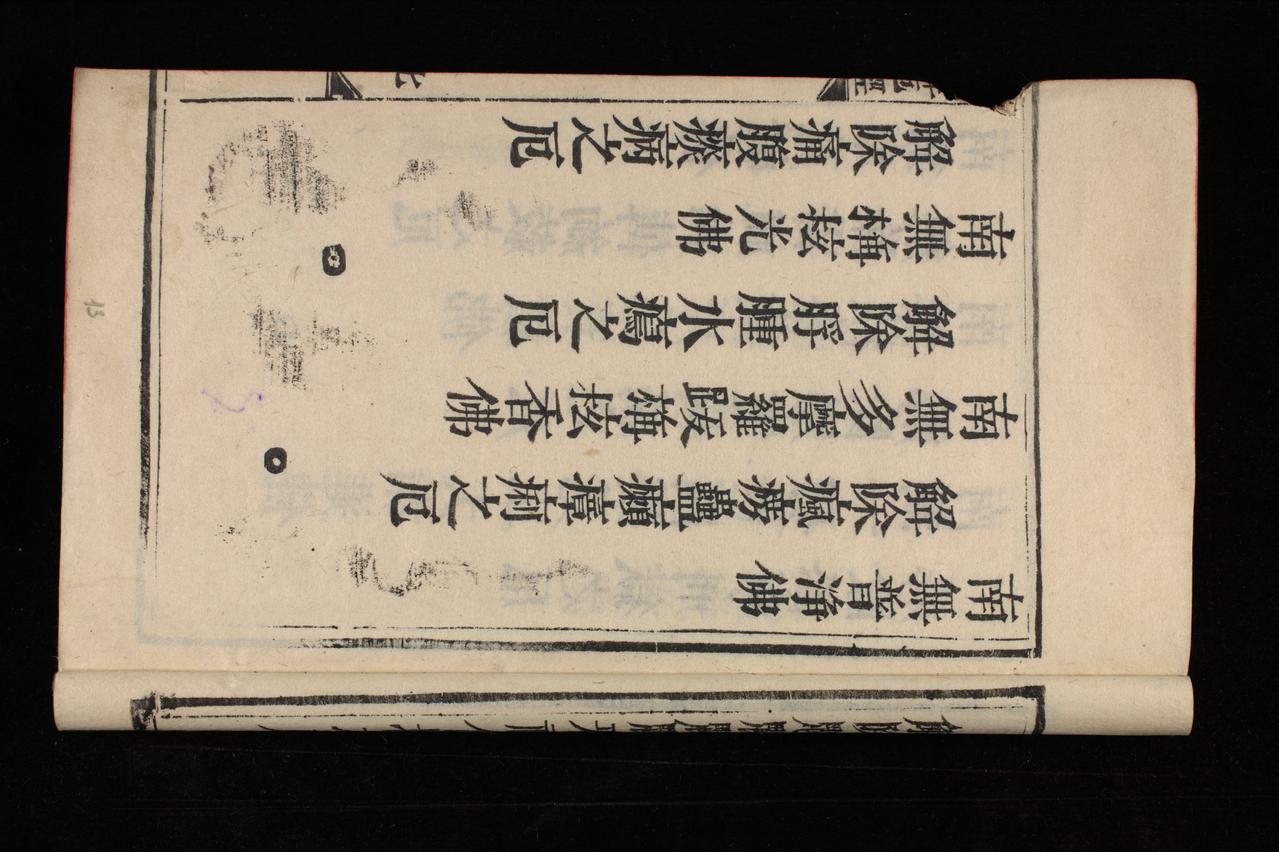 南無普淨佛
解除瘋癆蠱癩瘴痢之厄
南無多摩羅跋栴檀香佛
解除脬腫水之厄
南無栴檀光佛
解除痛腹瘀病之厄